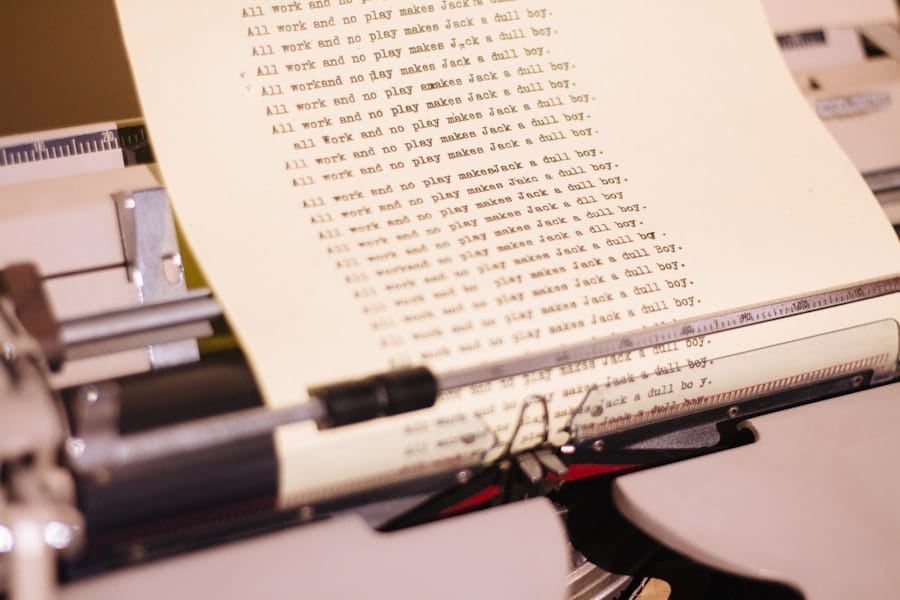 All work and no
All work and no play makes Jack a dull
All work and no play makes Jack a dull boy.
All work and no play makes J ck a dull boy.
All workand no play makes Jack a dull boy.
All work and no play amakes Jack a dull boy.
All work and no play makes Jack a dull boy.
all Work and no play makes Jack a dull boy.
All work and no play makes Jack a dull boy.
All work and no play makes Jack a dull boy.
All work and no play makesJack a dull boy.
All work and no play makes Jakc a dull boy.
All work and no play makes Jack a dull boy.
All work and no play makes Jack a dll boy
All work and no play makes Jack a dull boy.
All workand no play makes Jack a dll boy.
All work and no play makes Jack a dull
All work and no play makes Jack a dull Boy.
All work and no play makes Jack a dull boy.
All work and no play makes Jack a dull boy.
work and no play makes Jack a dull boy.
makes Jack a dull boy.
makes Jack a dull boy.
Jack a dull bo y.